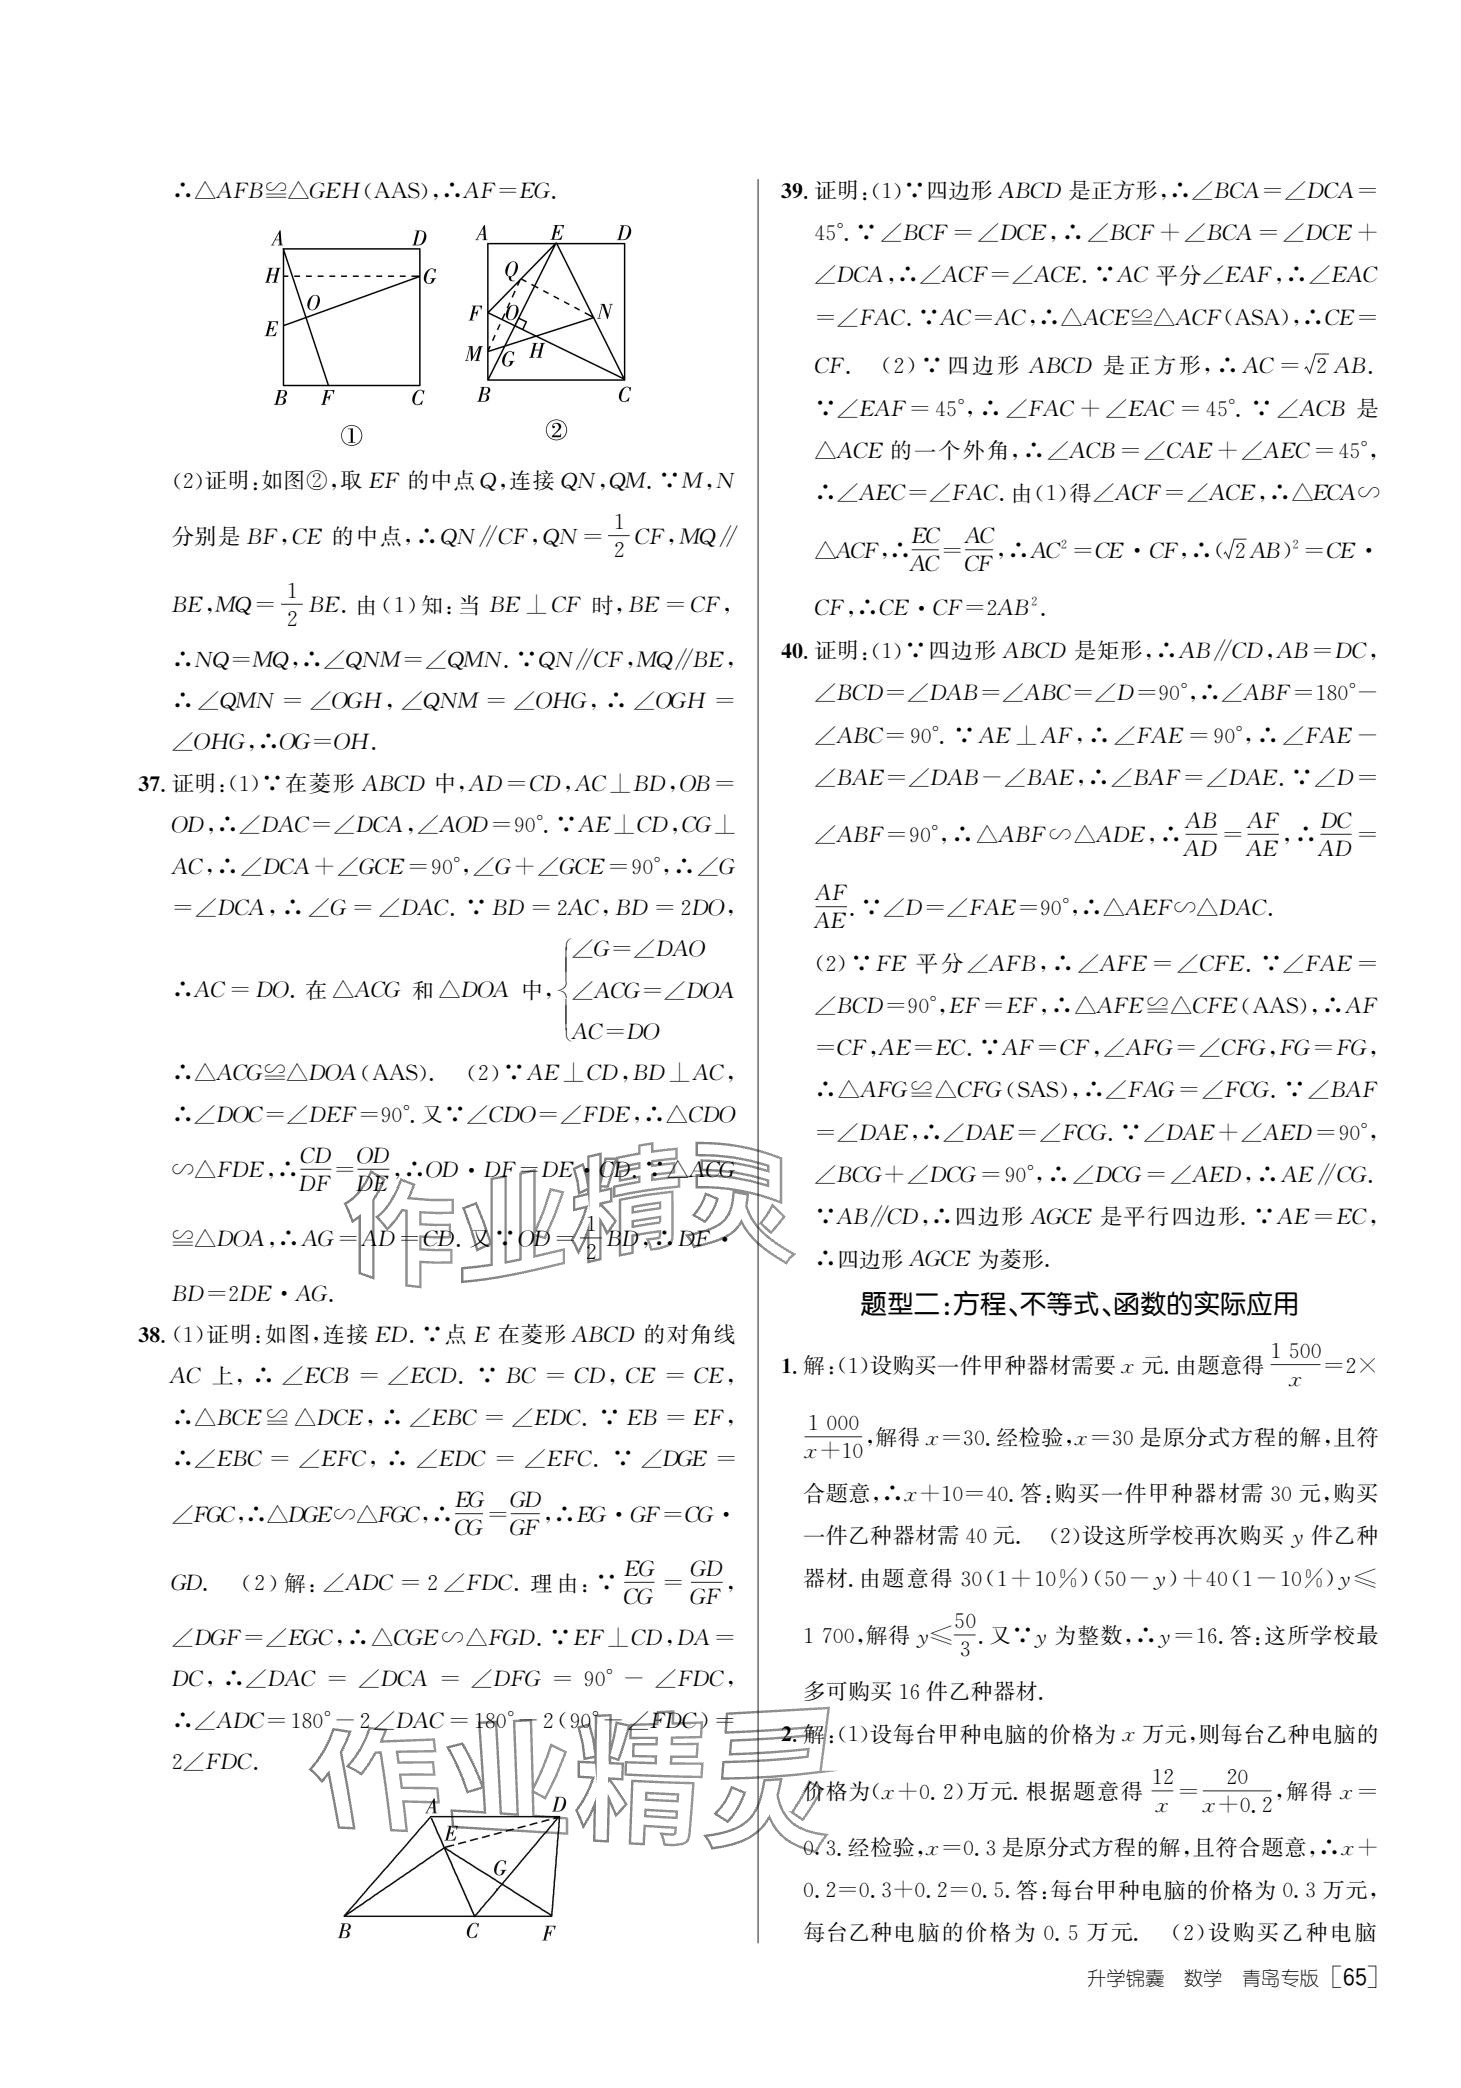 ∴△AFB≌△GEH(AAS),∴AF=EG.
A D H G O E B F C
①
A E D Q F O N M G H B C
②
(2)证明:如图②,取 EF 的中点Q,连接 QN,QM. ∵M,N
分别是 BF,CE 的中点,∴QN∥CF,QN=1/2 CF,MQ∥
BE,MQ=1/2 BE. 由(1)知:当 BE⊥CF 时,BE=CF,
∴NQ=MQ,∴∠QNM=∠QMN. ∵QN∥CF,MQ∥BE,
∴∠QMN=∠OGH,∠QNM=∠OHG,∴∠OGH=
∠OHG,∴OG=OH.
37. 证明:(1)∵在菱形 ABCD 中,AD=CD,AC⊥BD,OB=
OD,∴∠DAC=∠DCA,∠AOD=90°. ∵AE⊥CD,CG⊥
AC,∴∠DCA+∠GCE=90°,∠G+∠GCE=90°,∴∠G
=∠DCA,∴∠G=∠DAC. ∵BD=2AC,BD=2DO,
∴AC=DO. 在△ACG 和△DOA 中,{∠G=∠DAO
∠ACG=∠DOA
AC=DO
∴△ACG≌△DOA(AAS). (2)∵AE⊥CD,BD⊥AC,
∴∠DOC=∠DEF=90°. 又∵∠CDO=∠FDE,∴△CDO
∽△FDE,∴CD/DF=OD/DE,∴OD·DF=DE·CD. ∵△ACG
≌△DOA,∴AG=AD=CD. 又∵OD=1/2 BD,∴DF·
BD=2DE·AG.
38. (1)证明:如图,连接 ED. ∵点 E 在菱形 ABCD 的对角线
AC 上,∴∠ECB=∠ECD. ∵BC=CD,CE=CE,
∴△BCE≌△DCE,∴∠EBC=∠EDC. ∵EB=EF,
∴∠EBC=∠EFC,∴∠EDC=∠EFC. ∵∠DGE=
∠FGC,∴△DGE∽△FGC,∴EG/CG=GD/GF,∴EG·GF=CG·
GD. (2)解:∠ADC=2∠FDC. 理由:∵EG/CG=GD/GF,
∠DGF=∠EGC,∴△CGE∽△FGD. ∵EF⊥CD,DA=
DC,∴∠DAC=∠DCA=∠DFG=90°-∠FDC,
∴∠ADC=180°-2∠DAC=180°-2(90°-∠FDC)=
2∠FDC.
A D E G B C F
39. 证明:(1)∵四边形 ABCD 是正方形,∴∠BCA=∠DCA=
45°. ∵∠BCF=∠DCE,∴∠BCF+∠BCA=∠DCE+
∠DCA,∴∠ACF=∠ACE. ∵AC 平分∠EAF,∴∠EAC
=∠FAC. ∵AC=AC,∴△ACE≌△ACF(ASA),∴CE=
CF. (2)∵四边形 ABCD 是正方形,∴AC=√2AB.
∵∠EAF=45°,∴∠FAC+∠EAC=45°. ∵∠ACB 是
△ACE 的一个外角,∴∠ACB=∠CAE+∠AEC=45°,
∴∠AEC=∠FAC. 由(1)得∠ACF=∠ACE,∴△ECA∽
△ACF,∴EC/AC=AC/CF,∴AC²=CE·CF,∴(√2AB)²=CE·
CF,∴CE·CF=2AB².
40. 证明:(1)∵四边形 ABCD 是矩形,∴AB∥CD,AB=DC,
∠BCD=∠DAB=∠ABC=∠D=90°,∴∠ABF=180°-
∠ABC=90°. ∵AE⊥AF,∴∠FAE=90°,∴∠FAE-
∠BAE=∠DAB-∠BAE,∴∠BAF=∠DAE. ∵∠D=
∠ABF=90°,∴△ABF∽△ADE,∴AB/AD=AF/AE,∴DC/AD=
AF/AE. ∵∠D=∠FAE=90°,∴△AEF∽△DAC.
(2)∵FE 平分∠AFB,∴∠AFE=∠CFE. ∵∠FAE=
∠BCD=90°,EF=EF,∴△AFE≌△CFE(AAS),∴AF
=CF,AE=EC. ∵AF=CF,∠AFG=∠CFG,FG=FG,
∴△AFG≌△CFG(SAS),∴∠FAG=∠FCG. ∵∠BAF
=∠DAE,∴∠DAE=∠FCG. ∵∠DAE+∠AED=90°,
∠BCG+∠DCG=90°,∴∠DCG=∠AED,∴AE∥CG.
∵AB∥CD,∴四边形 AGCE 是平行四边形. ∵AE=EC,
∴四边形 AGCE 为菱形.
题型二:方程、不等式、函数的实际应用
1. 解:(1)设购买一件甲种器材需要 x 元. 由题意得 1 500/x=2×
1 000/(x+10),解得 x=30. 经检验,x=30 是原分式方程的解,且符
合题意,∴x+10=40. 答:购买一件甲种器材需 30 元,购买
一件乙种器材需 40 元. (2)设这所学校再次购买 y 件乙种
器材. 由题意得 30(1+10%)(50-y)+40(1-10%)y≤
1 700,解得 y≤50/3. 又∵y 为整数,∴y=16. 答:这所学校最
多可购买 16 件乙种器材.
2. 解:(1)设每台甲种电脑的价格为 x 万元,则每台乙种电脑的
价格为(x+0.2)万元. 根据题意得 12/x=20/(x+0.2),解得 x=
0.3. 经检验,x=0.3 是原分式方程的解,且符合题意,∴x+
0.2=0.3+0.2=0.5. 答:每台甲种电脑的价格为 0.3 万元,
每台乙种电脑的价格为 0.5 万元. (2)设购买乙种电脑
升学锦囊 数学 青岛专版 [65]
作业精灵
作业精灵